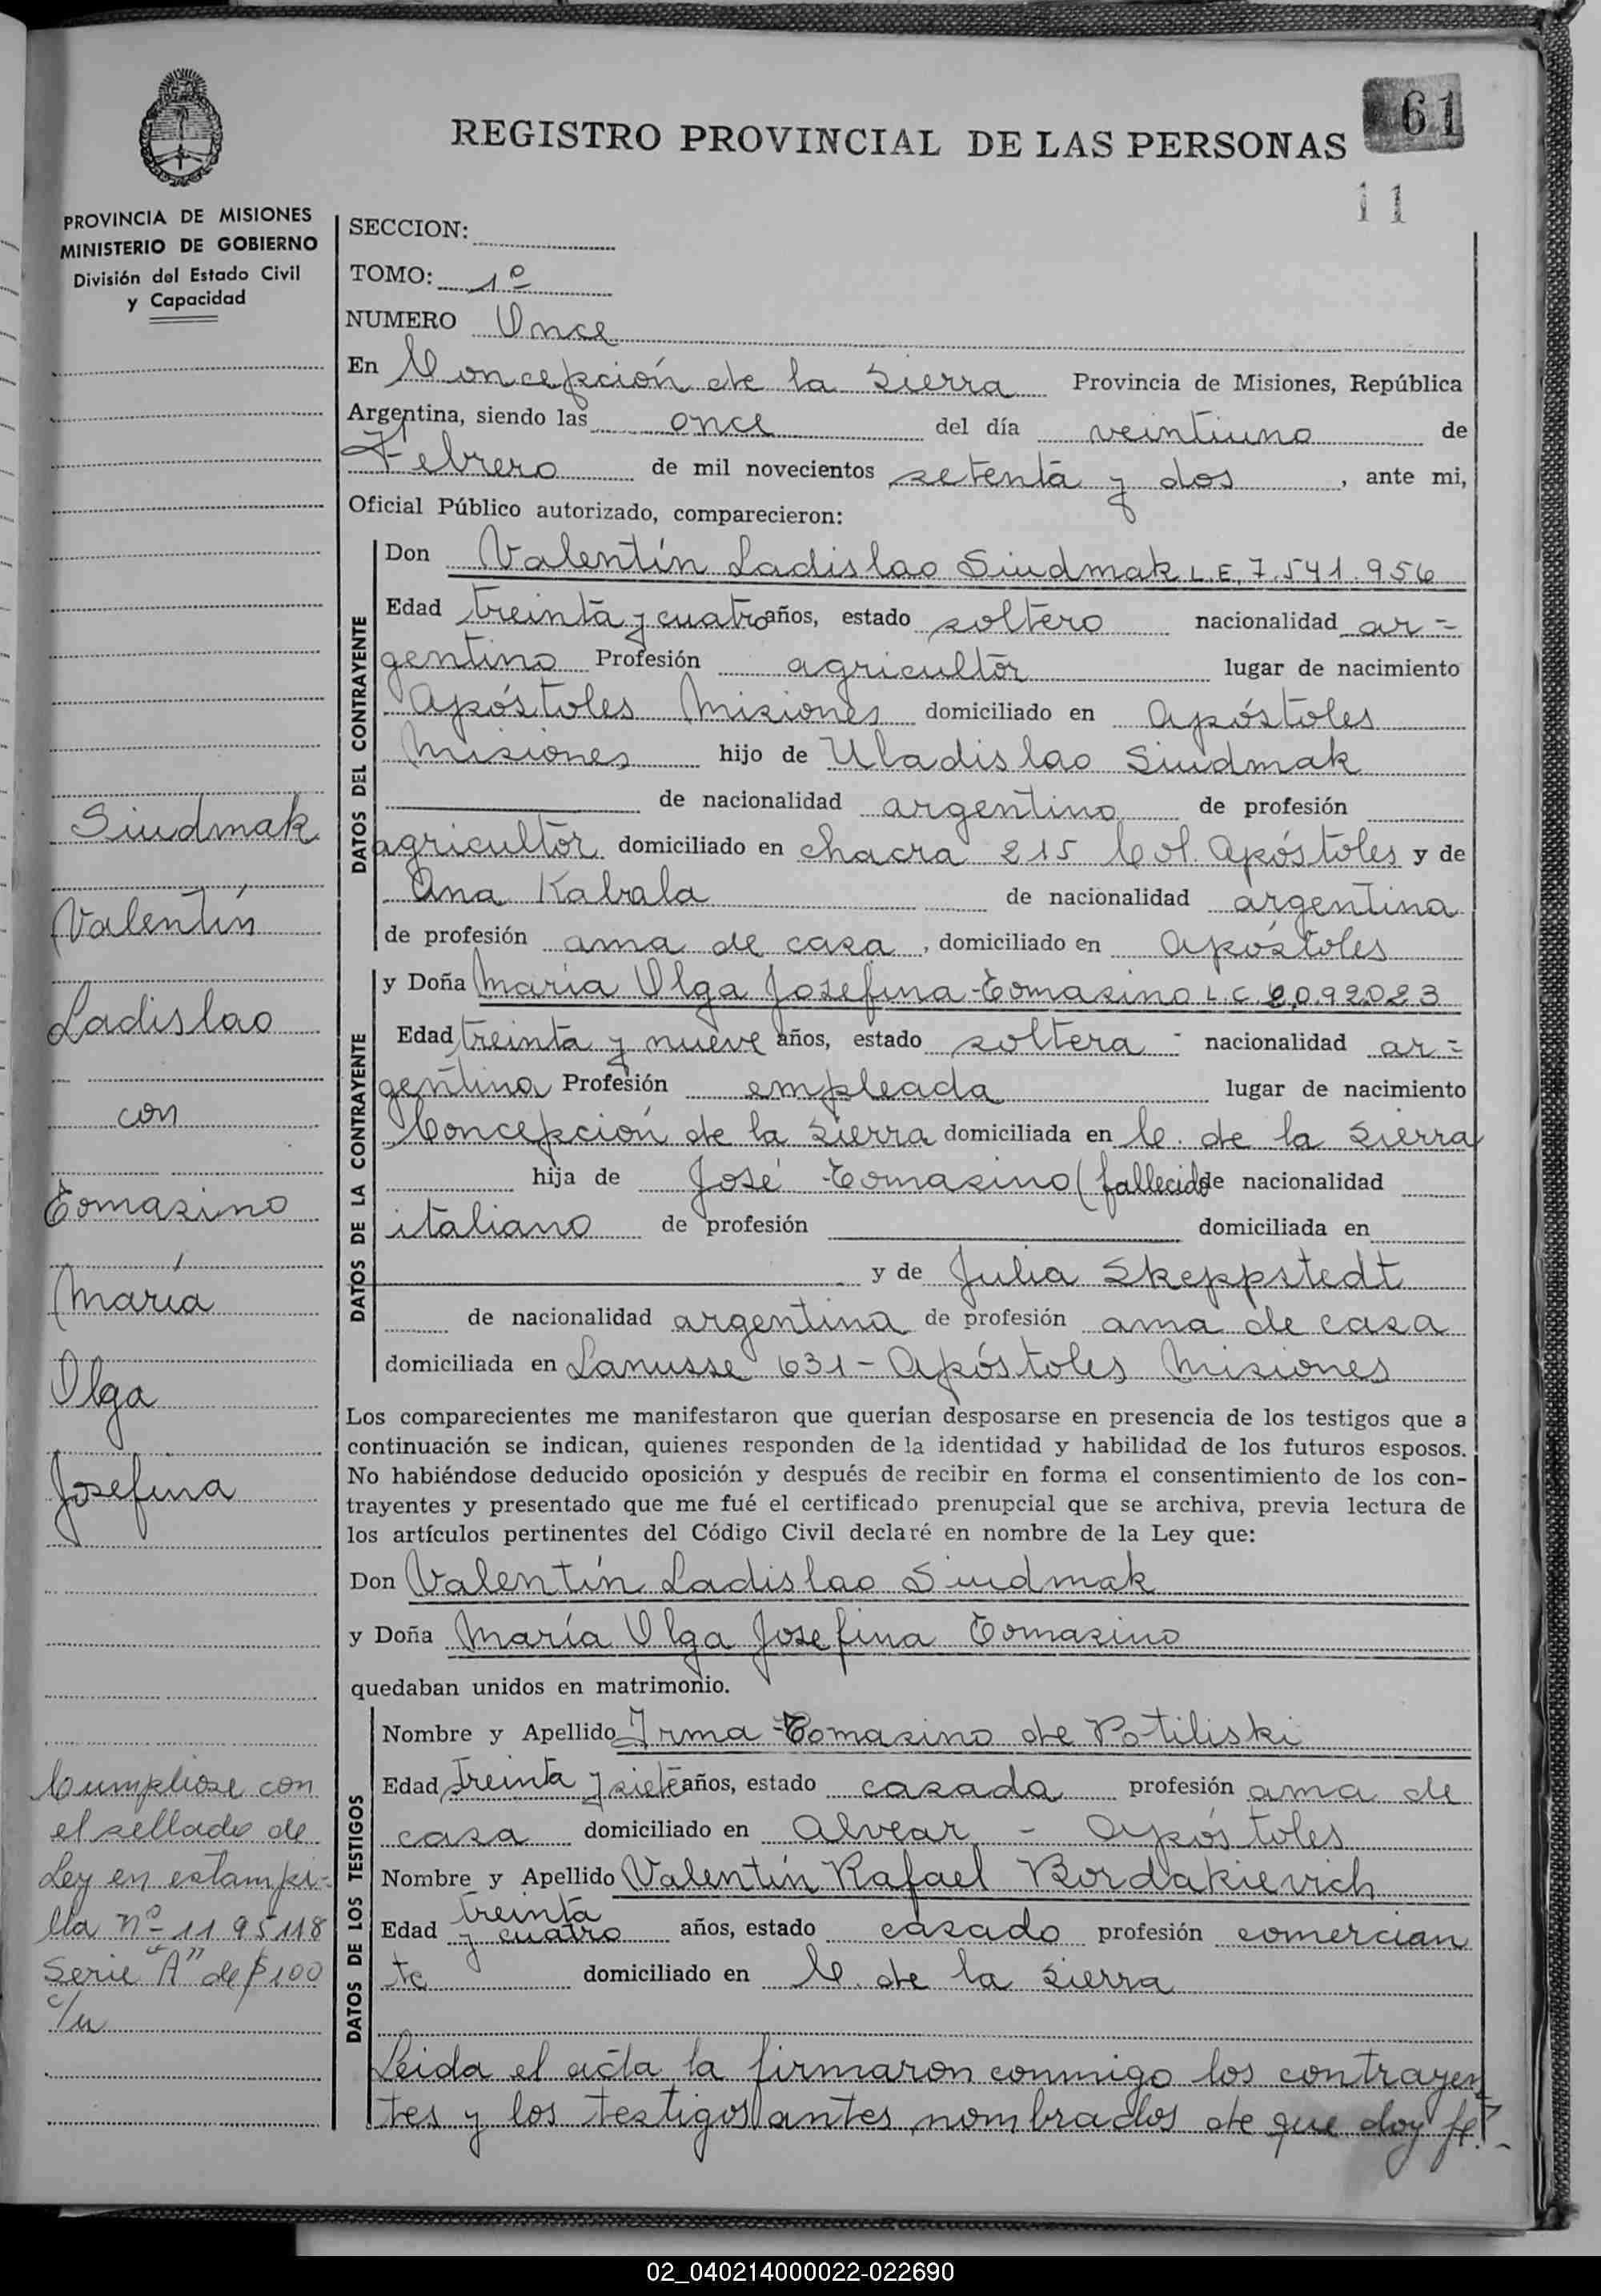 61
REGISTRO PROVINCIAL DE LAS PERSONAS
11
PROVINCIA DE MISIONES
MINISTERIO DE GOBIERNO
División del Estado Civil
y Capacidad
Siudmak
Valentín
Ladislao
con
Tomasino
María
Olga
Josefina
Cumpliose con
el sellado de
Ley en estampi-
lla Nº 1195118
Serie "A" de $100
c/u
SECCION:
TOMO: 1º
NUMERO Once
En Concepción de la Sierra Provincia de Misiones, República
Argentina, siendo las once del día veintiuno de
Febrero de mil novecientos setenta y dos, ante mi,
Oficial Público autorizado, comparecieron:
DATOS DEL CONTRAYENTE
Don Valentín Ladislao Siudmak L.E. 7.541.956
Edad treinta y cuatro años, estado soltero nacionalidad ar-
gentino Profesión agricultor lugar de nacimiento
Apóstoles Misiones domiciliado en Apóstoles
Misiones hijo de Uladislao Siudmak
de nacionalidad argentino de profesión
agricultor domiciliado en chacra 215 Col. Apóstoles y de
Ana Kabala de nacionalidad argentina
de profesión ama de casa, domiciliado en Apóstoles
DATOS DE LA CONTRAYENTE
y Doña María Olga Josefina Tomasino L.C. 2.092023
Edad treinta y nueve años, estado soltera - nacionalidad ar-
gentina Profesión empleada lugar de nacimiento
Concepción de la Sierra domiciliada en C. de la Sierra
hija de José Tomasino (fallecido de nacionalidad
italiano de profesión domiciliada en
y de Julia Skeppstedt
de nacionalidad argentina de profesión ama de casa
domiciliada en Lanusse 631 - Apóstoles Misiones
Los comparecientes me manifestaron que querían desposarse en presencia de los testigos que a
continuación se indican, quienes responden de la identidad y habilidad de los futuros esposos.
No habiéndose deducido oposición y después de recibir en forma el consentimiento de los con-
trayentes y presentado que me fué el certificado prenupcial que se archiva, previa lectura de
los artículos pertinentes del Código Civil declaré en nombre de la Ley que:
Don Valentín Ladislao Siudmak
y Doña María Olga Josefina Tomasino
quedaban unidos en matrimonio.
DATOS DE LOS TESTIGOS
Nombre y Apellido Irma Tomasino de Potiliski
Edad treinta y siete años, estado casada profesión ama de
casa domiciliado en Alvear - Apóstoles
Nombre y Apellido Valentín Rafael Bordakievich
Edad treinta y cuatro años, estado casado profesión comercian
te domiciliado en C. de la Sierra
Leida el acta la firmaron conmigo los contrayen
tes y los testigos antes nombrados de que doy fe.-
02_040214000022-022690